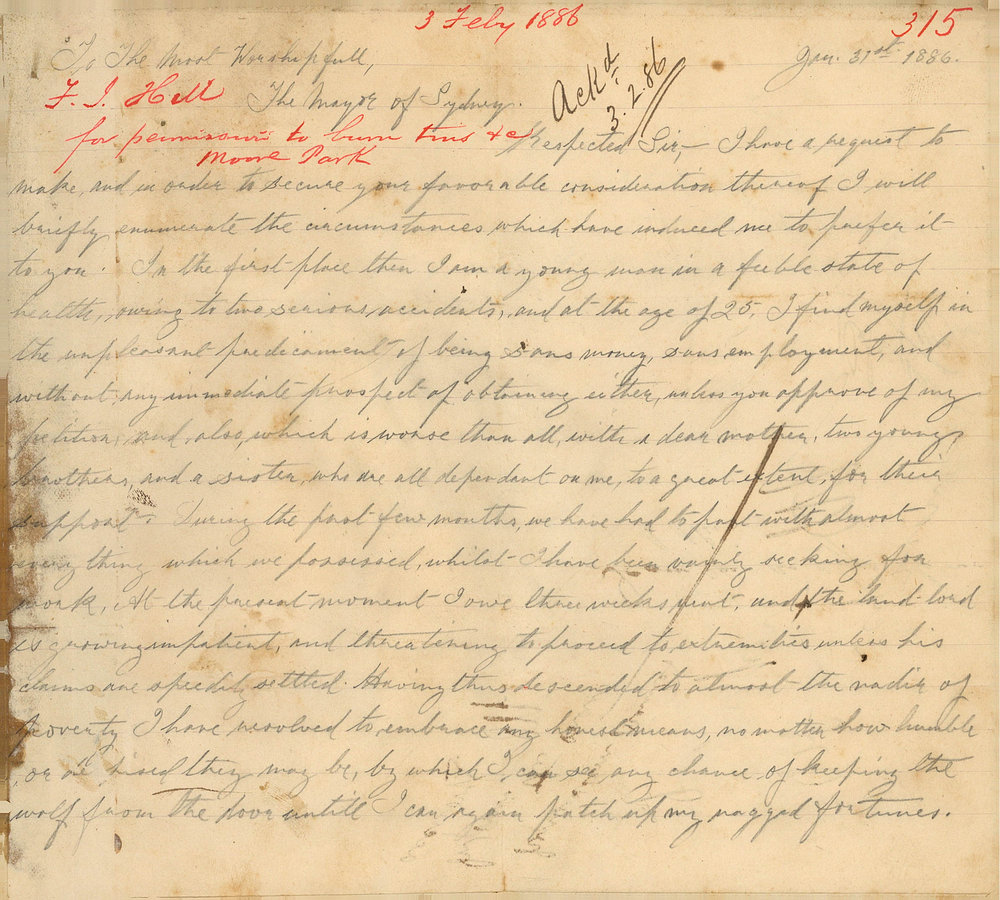 3 Feby 1886
315
To The Most Worshipfull,
Jan. 31st 1886.
F. J. Hill
The Mayor of Sydney.
Ackd
3.2.86
for permission to burn tins &c
Moore Park
Respected Sir,— I have a request to
make, and in order to secure your favorable consideration thereof I will
briefly enumerate the circumstances which have induced me to prefer it
to you. In the first place then I am a young man in a feeble state of
health, owing to two serious accidents, and at the age of 25, I find myself in
the unpleasant predicament of being sans money, sans employment, and
without any immediate prospect of obtaining either, unless you approve of my
petition, and, also, which is worse than all, with a dear mother, two young
brothers, and a sister, who are all dependant on me, to a great extent, for their
support. During the past few months, we have had to part with almost
every thing which we possessed, whilst I have been vainly seeking for
work, At the present moment I owe three weeks rent, and the land-lord
is growing impatient, and threatening to proceed to extremities unless his
claims are speedily settled. Having thus descended to almost the nadir of
poverty I have resolved to embrace any honest means, no matter how humble
, or they may be, by which I can see any chance of keeping the
wolf from the door untill I can again patch up my ragged fortunes.